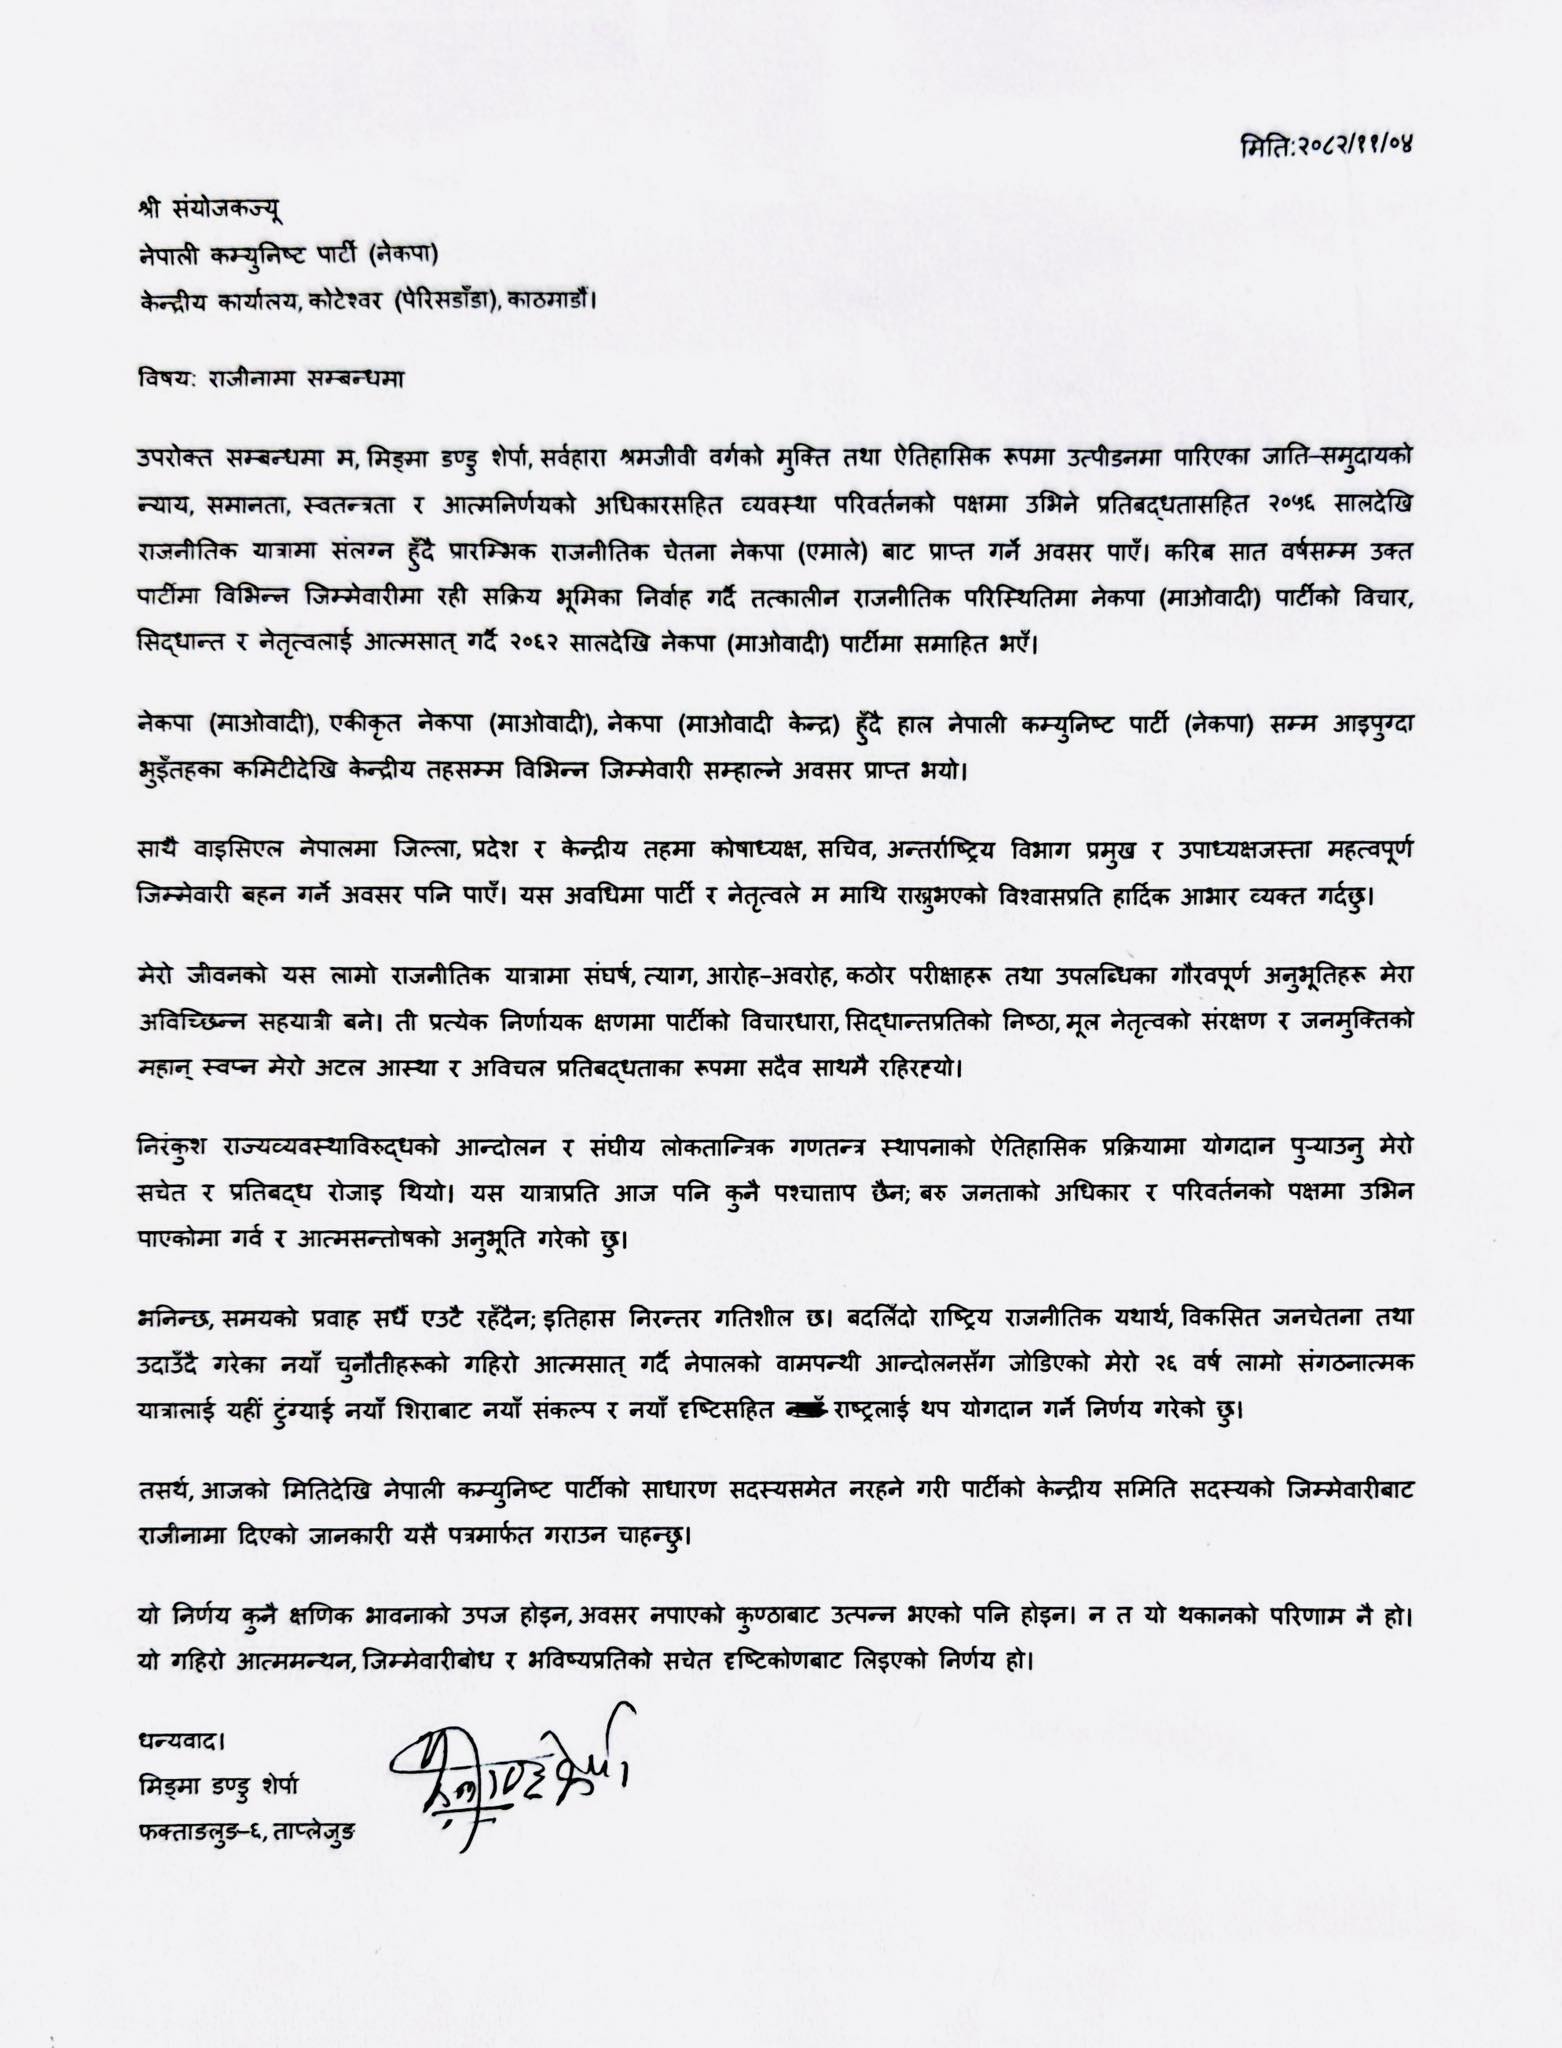 मिति:२०८२/११/०४
श्री संयोजकज्यू
नेपाली कम्युनिष्ट पार्टी (नेकपा)
केन्द्रीय कार्यालय, कोटेश्वर (पेरिसडाँडा), काठमाडौं।
विषय: राजीनामा सम्बन्धमा
उपरोक्त सम्बन्धमा म, मिङ्मा डण्डु शेर्पा, सर्वहारा श्रमजीवी वर्गको मुक्ति तथा ऐतिहासिक रूपमा उत्पीडनमा पारिएका जाति–समुदायको
न्याय, समानता, स्वतन्त्रता र आत्मनिर्णयको अधिकारसहित व्यवस्था परिवर्तनको पक्षमा उभिने प्रतिबद्धतासहित २०५६ सालदेखि
राजनीतिक यात्रामा संलग्न हुँदै प्रारम्भिक राजनीतिक चेतना नेकपा (एमाले) बाट प्राप्त गर्ने अवसर पाएँ। करिब सात वर्षसम्म उक्त
पार्टीमा विभिन्न जिम्मेवारीमा रही सक्रिय भूमिका निर्वाह गर्दै तत्कालीन राजनीतिक परिस्थितिमा नेकपा (माओवादी) पार्टीको विचार,
सिद्धान्त र नेतृत्वलाई आत्मसात् गर्दै २०६२ सालदेखि नेकपा (माओवादी) पार्टीमा समाहित भएँ।
नेकपा (माओवादी), एकीकृत नेकपा (माओवादी), नेकपा (माओवादी केन्द्र) हुँदै हाल नेपाली कम्युनिष्ट पार्टी (नेकपा) सम्म आइपुग्दा
भुइँतहका कमिटीदेखि केन्द्रीय तहसम्म विभिन्न जिम्मेवारी सम्हाल्ने अवसर प्राप्त भयो।
साथै वाइसिएल नेपालमा जिल्ला, प्रदेश र केन्द्रीय तहमा कोषाध्यक्ष, सचिव, अन्तर्राष्ट्रिय विभाग प्रमुख र उपाध्यक्षजस्ता महत्वपूर्ण
जिम्मेवारी बहन गर्ने अवसर पनि पाएँ। यस अवधिमा पार्टी र नेतृत्वले म माथि राख्नुभएको विश्वासप्रति हार्दिक आभार व्यक्त गर्दछु।
मेरो जीवनको यस लामो राजनीतिक यात्रामा संघर्ष, त्याग, आरोह–अवरोह, कठोर परीक्षाहरू तथा उपलब्धिका गौरवपूर्ण अनुभूतिहरू मेरा
अविच्छिन्न सहयात्री बने। ती प्रत्येक निर्णायक क्षणमा पार्टीको विचारधारा, सिद्धान्तप्रतिको निष्ठा, मूल नेतृत्वको संरक्षण र जनमुक्तिको
महान् स्वप्न मेरो अटल आस्था र अविचल प्रतिबद्धताका रूपमा सदैव साथमै रहिरह्यो।
निरंकुश राज्यव्यवस्थाविरुद्धको आन्दोलन र संघीय लोकतान्त्रिक गणतन्त्र स्थापनाको ऐतिहासिक प्रक्रियामा योगदान पुर्‍याउनु मेरो
सचेत र प्रतिबद्ध रोजाइ थियो। यस यात्राप्रति आज पनि कुनै पश्चात्ताप छैन; बरु जनताको अधिकार र परिवर्तनको पक्षमा उभिन
पाएकोमा गर्व र आत्मसन्तोषको अनुभूति गरेको छु।
भनिन्छ, समयको प्रवाह सधैं एउटै रहँदैन; इतिहास निरन्तर गतिशील छ। बदलिँदो राष्ट्रिय राजनीतिक यथार्थ, विकसित जनचेतना तथा
उदाउँदै गरेका नयाँ चुनौतीहरूको गहिरो आत्मसात् गर्दै नेपालको वामपन्थी आन्दोलनसँग जोडिएको मेरो २६ वर्ष लामो संगठनात्मक
यात्रालाई यहीं टुंग्याई नयाँ शिराबाट नयाँ संकल्प र नयाँ दृष्टिसहित राष्ट्रलाई थप योगदान गर्ने निर्णय गरेको छु।
तसर्थ, आजको मितिदेखि नेपाली कम्युनिष्ट पार्टीको साधारण सदस्यसमेत नरहने गरी पार्टीको केन्द्रीय समिति सदस्यको जिम्मेवारीबाट
राजीनामा दिएको जानकारी यसै पत्रमार्फत गराउन चाहन्छु।
यो निर्णय कुनै क्षणिक भावनाको उपज होइन, अवसर नपाएको कुण्ठाबाट उत्पन्न भएको पनि होइन। न त यो थकानको परिणाम नै हो।
यो गहिरो आत्ममन्थन, जिम्मेवारीबोध र भविष्यप्रतिको सचेत दृष्टिकोणबाट लिइएको निर्णय हो।
धन्यवाद।
मिङ्मा डण्डु शेर्पा
फक्ताङलुङ–६, ताप्लेजुङ